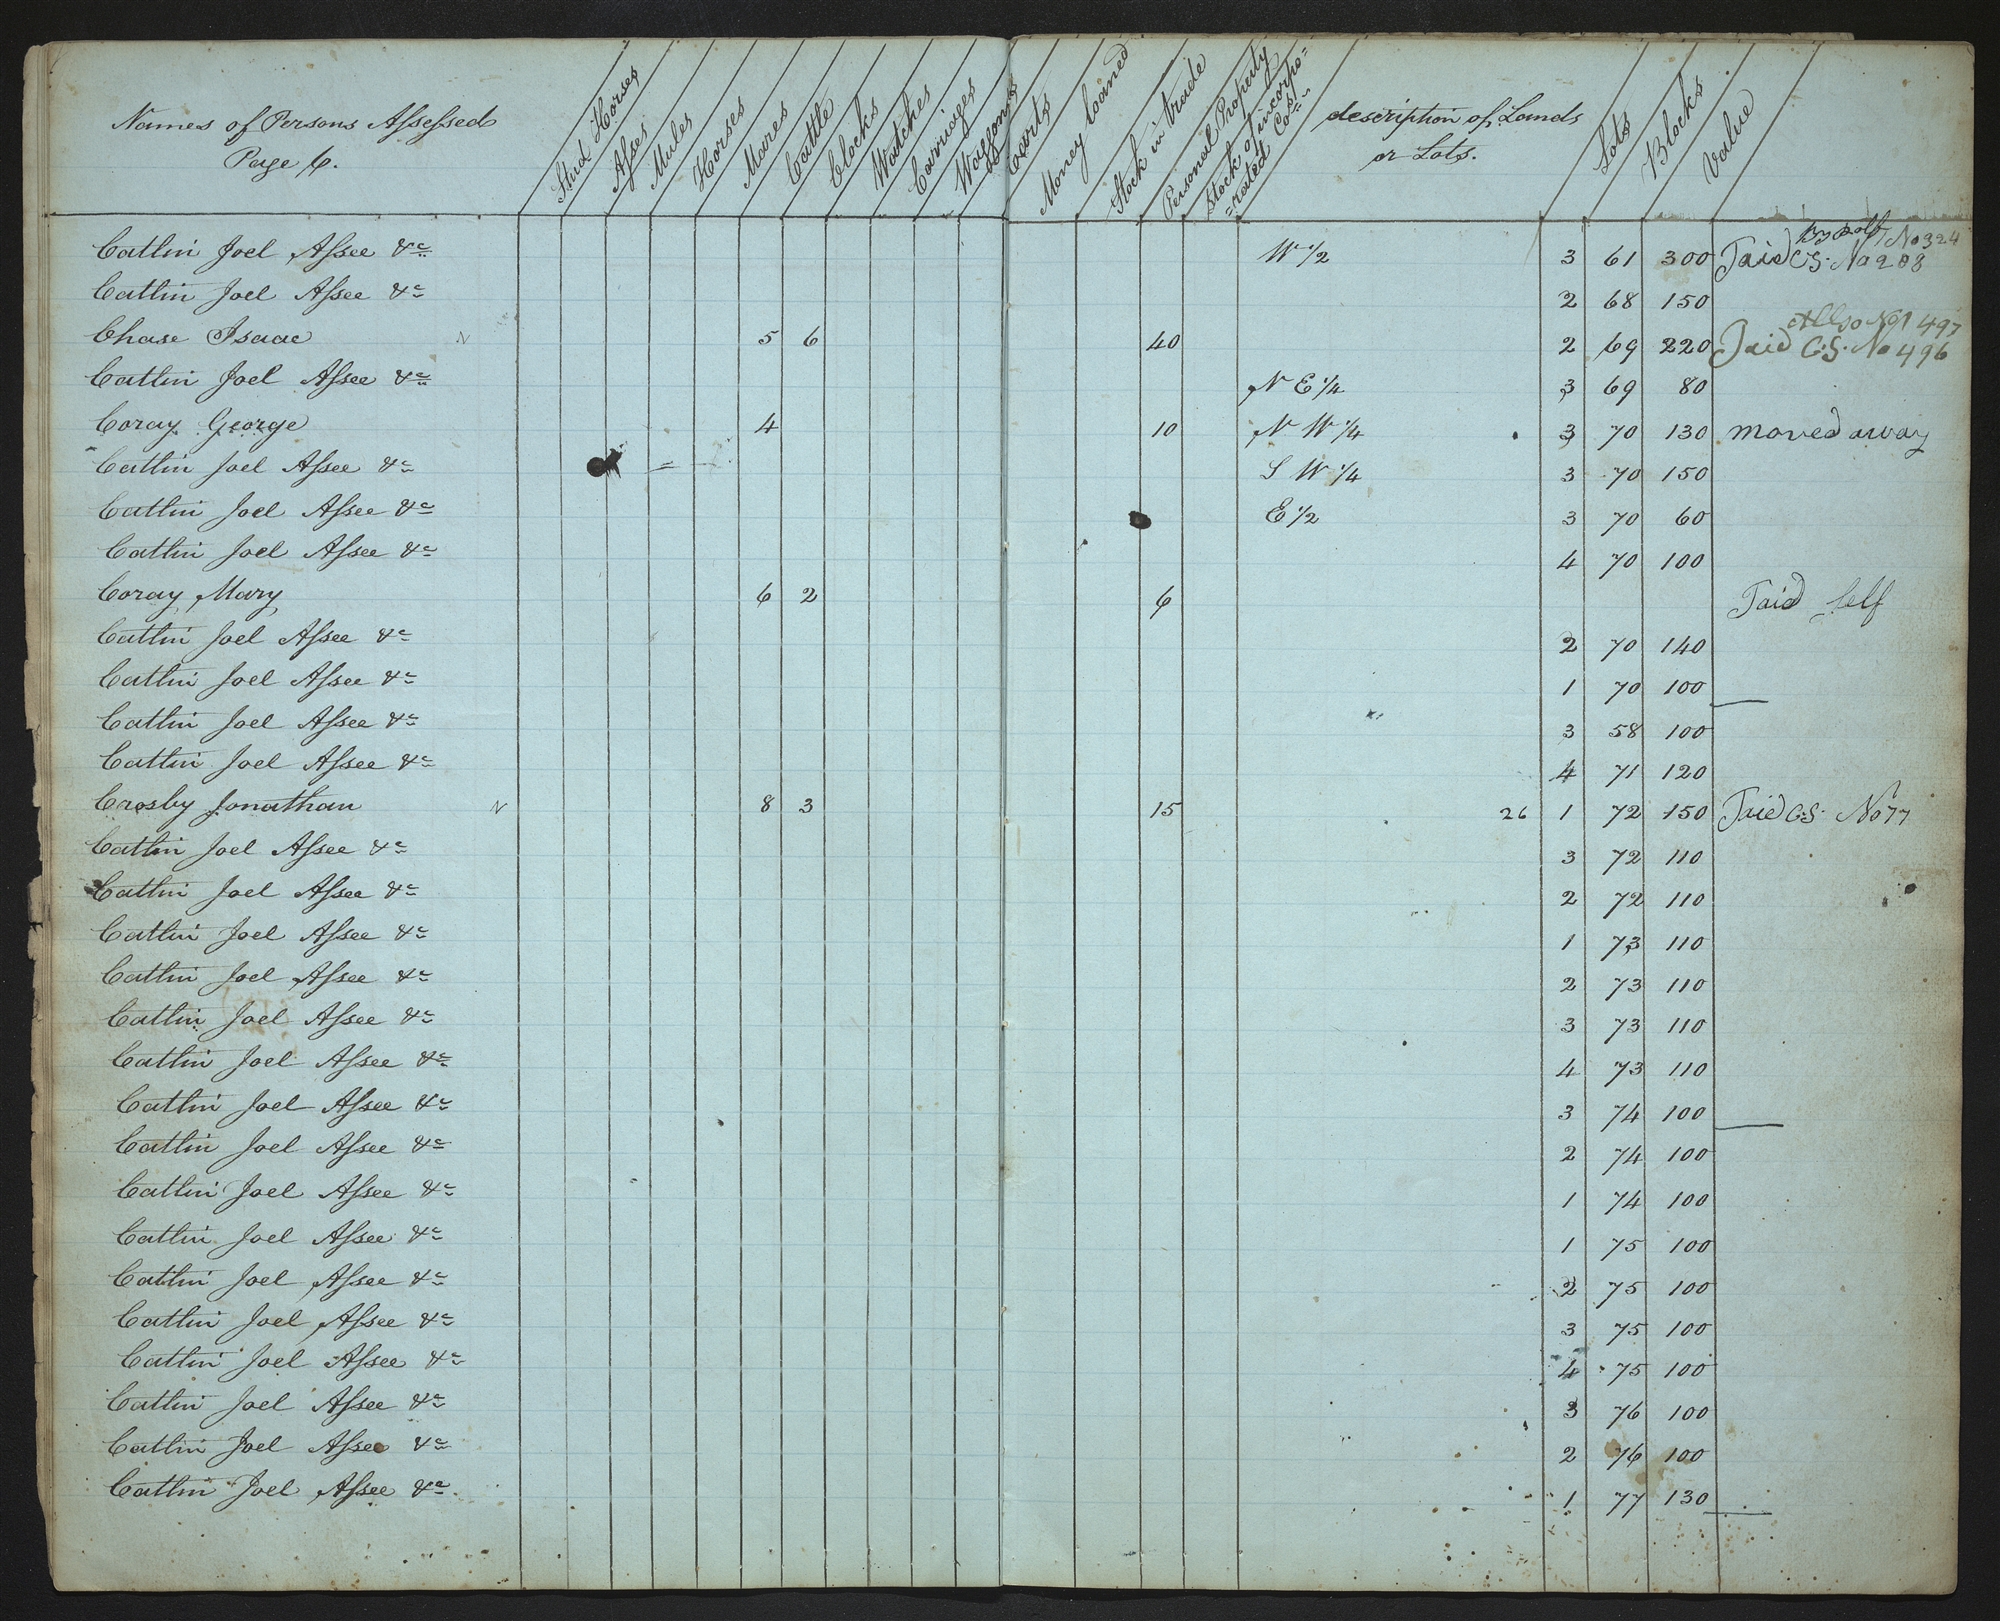 Names of Persons Assessed
Page 6.
Stud Horses
Asses
Mules
Horses
Mares
Cattle
Clocks
Watches
Carriages
Waggons
Carts
Money loaned
Stock in trade
Personal Property
Stock of incorpo=
=rated Cos
description of Lands
or Lots.
Lots
Blocks
Value
Catlin Joel Assee &c W 1/2 3 61 300 Paid C.S. No 208 No 324
Catlin Joel Assee &c 2 68 150
Chase Isaac N 5 6 40 2 69 220 Paid C.S. No 496 Allso No 497
Catlin Joel Assee &c N E 1/4 3 69 80
Coray George 4 10 N W 1/4 3 70 130 moved away
Catlin Joel Assee &c S W 1/4 3 70 150
Catlin Joel Assee &c E 1/2 3 70 60
Catlin Joel Assee &c 4 70 100
Coray Mary 6 2 6 Paid Self
Catlin Joel Assee &c 2 70 140
Catlin Joel Assee &c 1 70 100
Catlin Joel Assee &c 3 58 100
Catlin Joel Assee &c 4 71 120
Crosby Jonathan N 8 3 15 26 1 72 150 Paid C.S. No 77
Catlin Joel Assee &c 3 72 110
Catlin Joel Assee &c 2 72 110
Catlin Joel Assee &c 1 73 110
Catlin Joel Assee &c 2 73 110
Catlin Joel Assee &c 3 73 110
Catlin Joel Assee &c 4 73 110
Catlin Joel Assee &c 3 74 100
Catlin Joel Assee &c 2 74 100
Catlin Joel Assee &c 1 74 100
Catlin Joel Assee &c 1 75 100
Catlin Joel Assee &c 2 75 100
Catlin Joel Assee &c 3 75 100
Catlin Joel Assee &c 4 75 100
Catlin Joel Assee &c 3 76 100
Catlin Joel Assee &c 2 76 100
Catlin Joel Assee &c 1 77 130